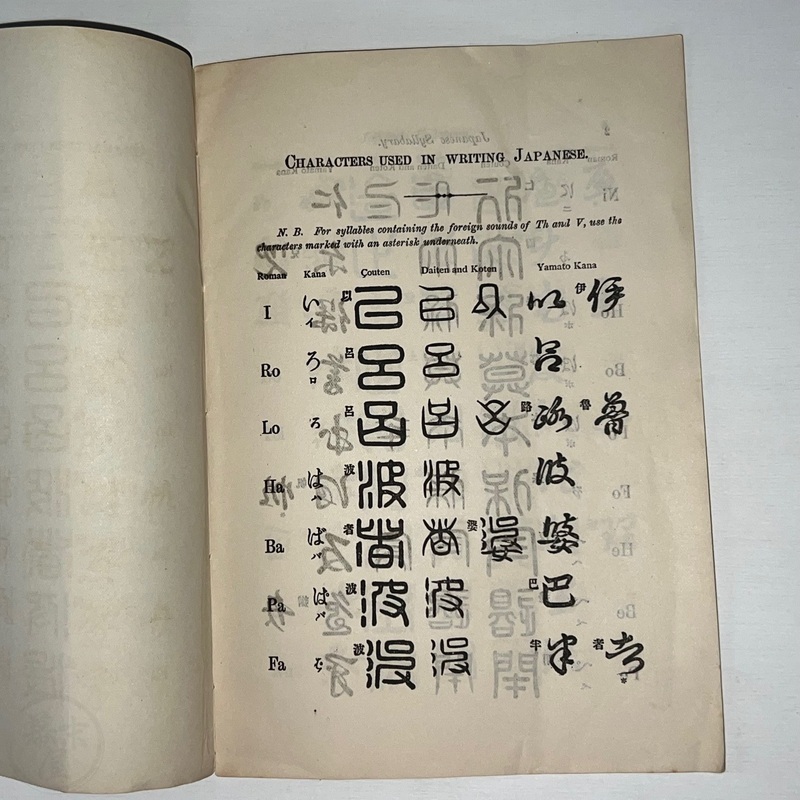 CHARACTERS USED IN WRITING JAPANESE.
N. B. For syllables containing the foreign sounds of Th and V, use the
characters marked with an asterisk underneath.
Roman Kana Çouten Daiten and Koten Yamato Kana
I い イ 以 㠯 㠯 以 伊 伊
Ro ろ ロ 呂 呂 呂 呂
Lo ろ 呂 呂 呂 路 路 魯 魯
Ha は ハ 波 波 波 波
Ba ば バ 者 者 者 婆 婆 婆
Pa ぱ パ 波 波 波 巴 巴
Fa 波 波 波 半 半 者 者